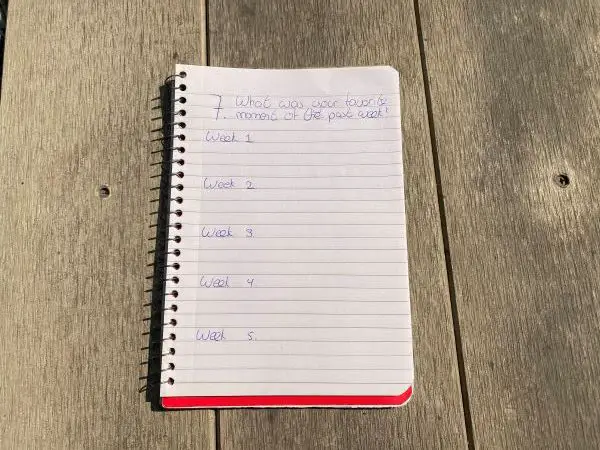 7. What was your favorite
moment of the past week?
Week 1
Week 2
Week 3.
Week 4
Week 5.